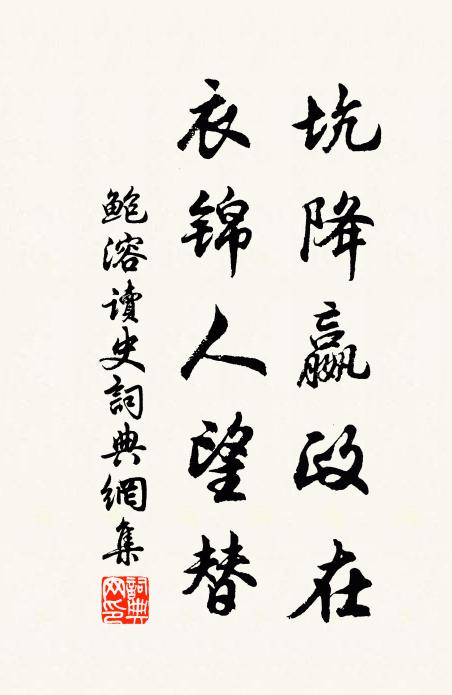 坑降嬴政在
衣锦人望替
鲍溶讀史詞典網集
詞典网印